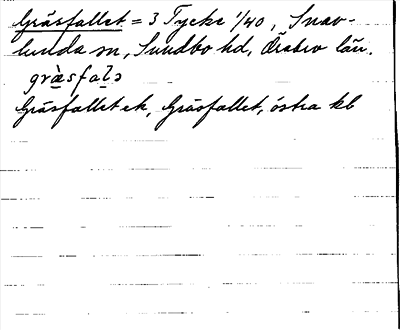 Gräsfallet = 3 Tycke 1/40, Snav-
lunda sn, Sundbo hd, Örebro län.
gràsfalə
Gräsfallet ek, Gräsfallet, östra kb